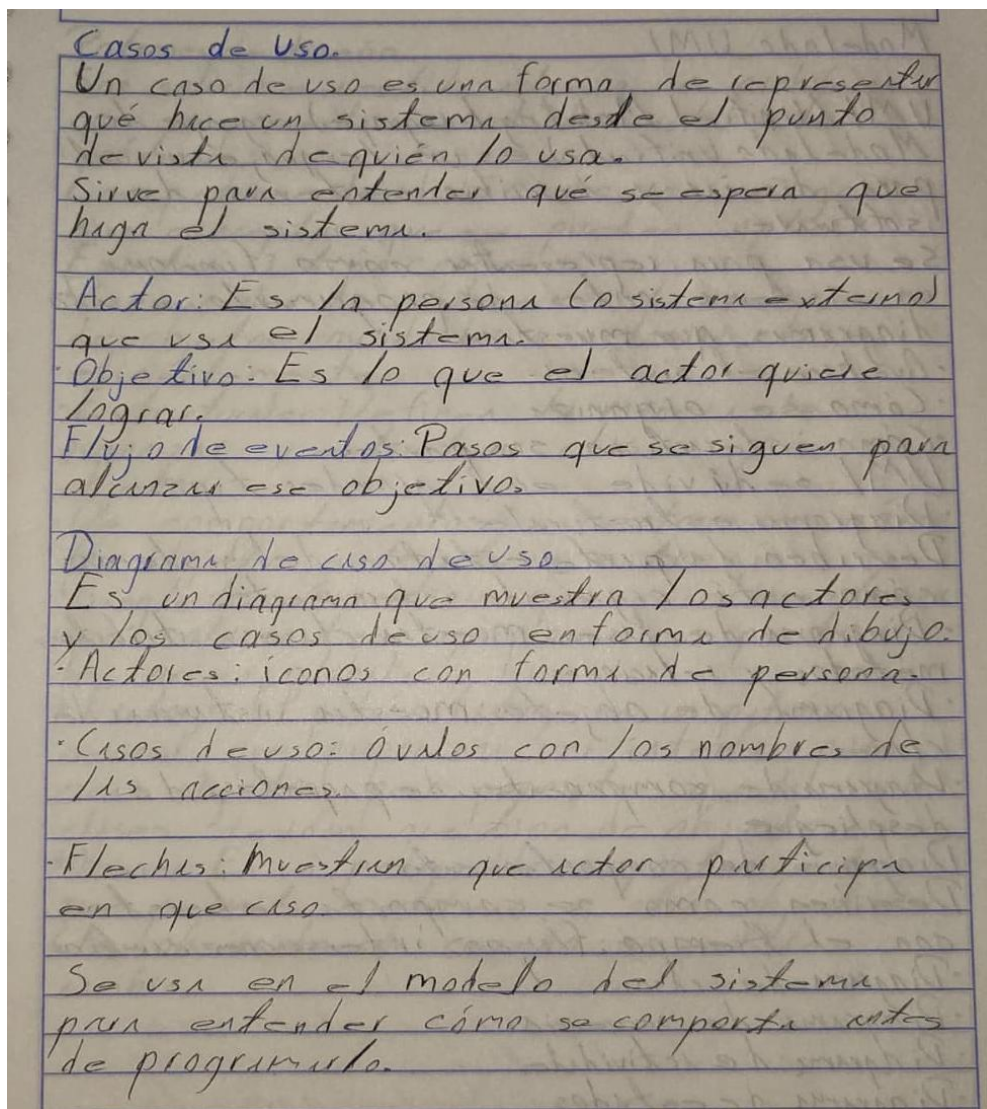 Casos de Uso.
Un caso de uso es una forma de representar
qué hace un sistema desde el punto
de vista de quién lo usa.
Sirve para entender qué se espera que
haga el sistema.
Actor: Es la persona (o sistema externo)
que usa el sistema.
·Objetivo: Es lo que el actor quiere
lograr.
Flujo de eventos: Pasos que se siguen para
alcanzar ese objetivo.
Diagrama de caso de uso
Es un diagrama que muestra los actores
y los casos de uso en forma de dibujo.
·Actores: iconos con forma de persona.
·Casos de uso: óvalos con los nombres de
las acciones.
·Flechas: Muestran que actor participa
en que caso.
Se usa en el modelo del sistema
para entender cómo se comporta antes
de programarlo.